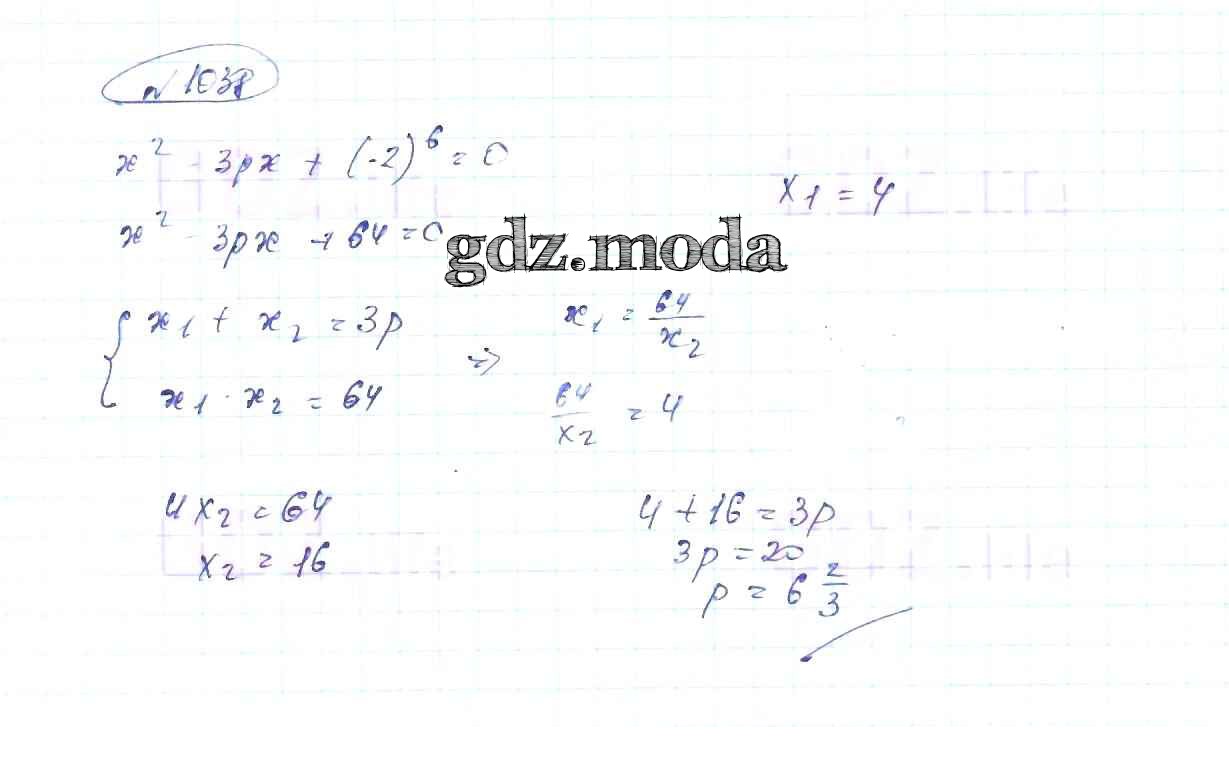 № 1038
x² - 3px + (-2)⁶ = 0
x₁ = 4
x² - 3px + 64 = 0
gdz.moda
x₁ + x₂ = 3p
x₁ · x₂ = 64
⇒
x₁ = 64/x₂
64/x₂ = 4
4x₂ = 64
x₂ = 16
4 + 16 = 3p
3p = 20
p = 6 2/3